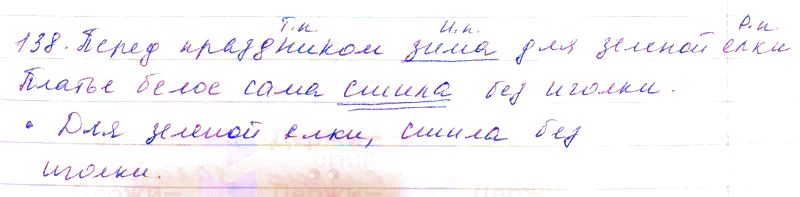 Т.п. И.п. Р.п.
138. Перед праздником зима для зеленой елки
Платье белое сама сшила без иголки.
• Для зеленой елки, сшила без
иголки.